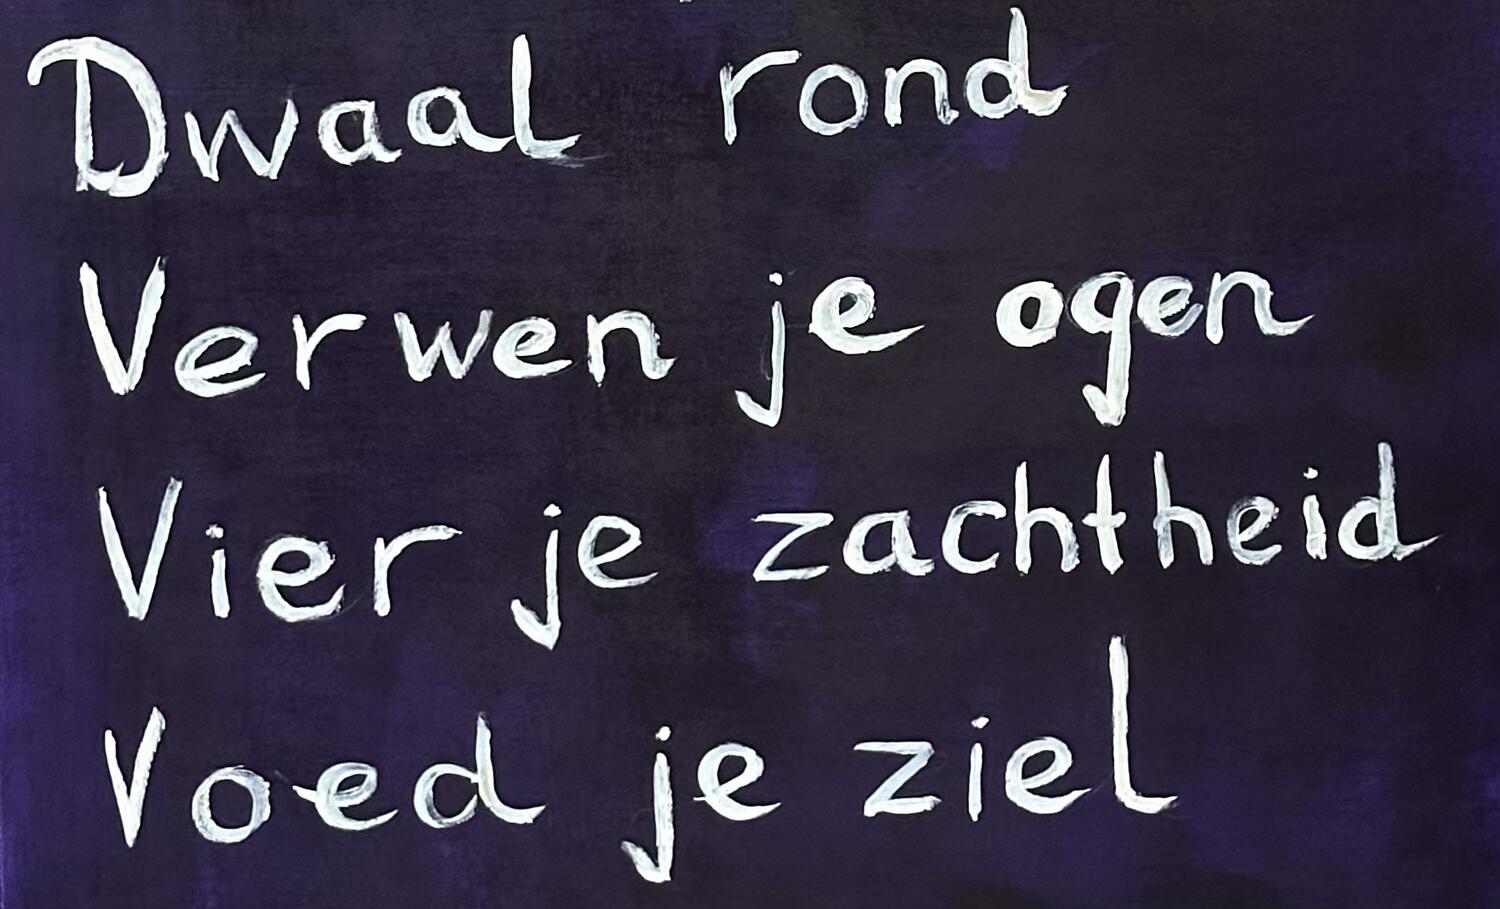 Dwaal rond
Verwen je ogen
Vier je zachtheid
Voed je ziel